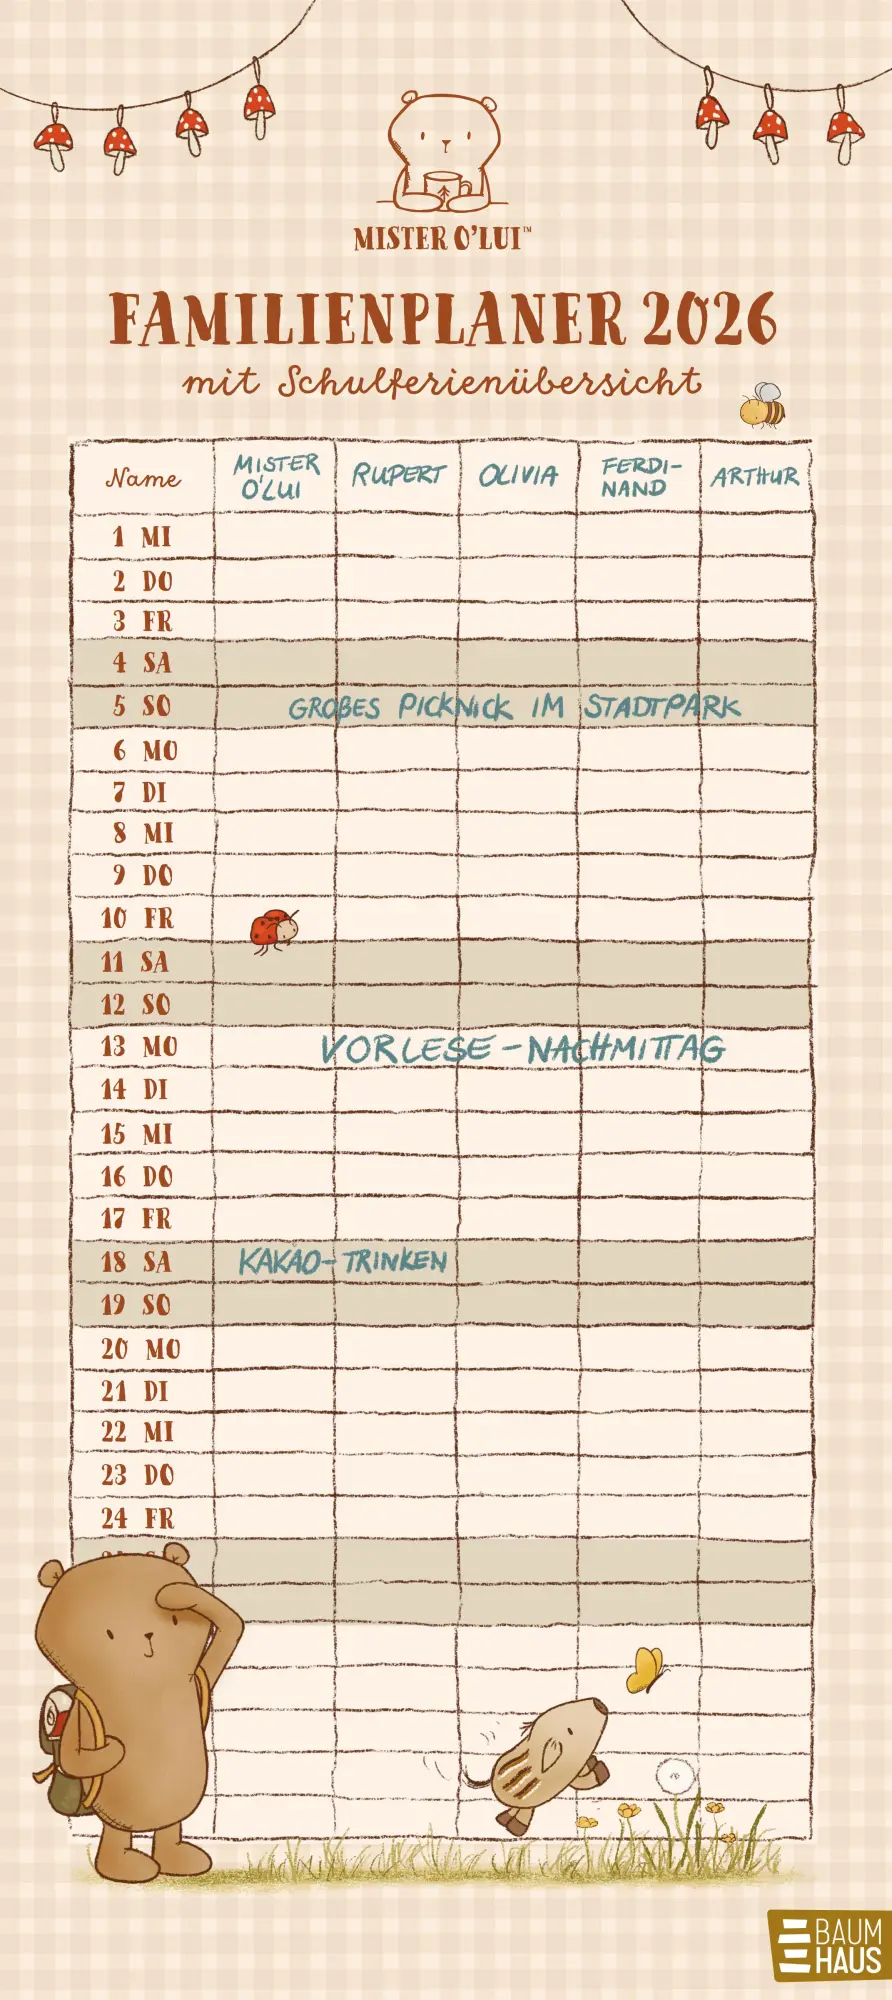 MISTER O'LUI™
FAMILIENPLANER 2026
mit Schulferienübersicht
Name MISTER O'LUI RUPERT OLIVIA FERDI-NAND ARTHUR
1 MI
2 DO
3 FR
4 SA
5 SO GROßES PICKNICK IM STADTPARK
6 MO
7 DI
8 MI
9 DO
10 FR
11 SA
12 SO
13 MO VORLESE-NACHMITTAG
14 DI
15 MI
16 DO
17 FR
18 SA KAKAO-TRINKEN
19 SO
20 MO
21 DI
22 MI
23 DO
24 FR
BAUM
HAUS